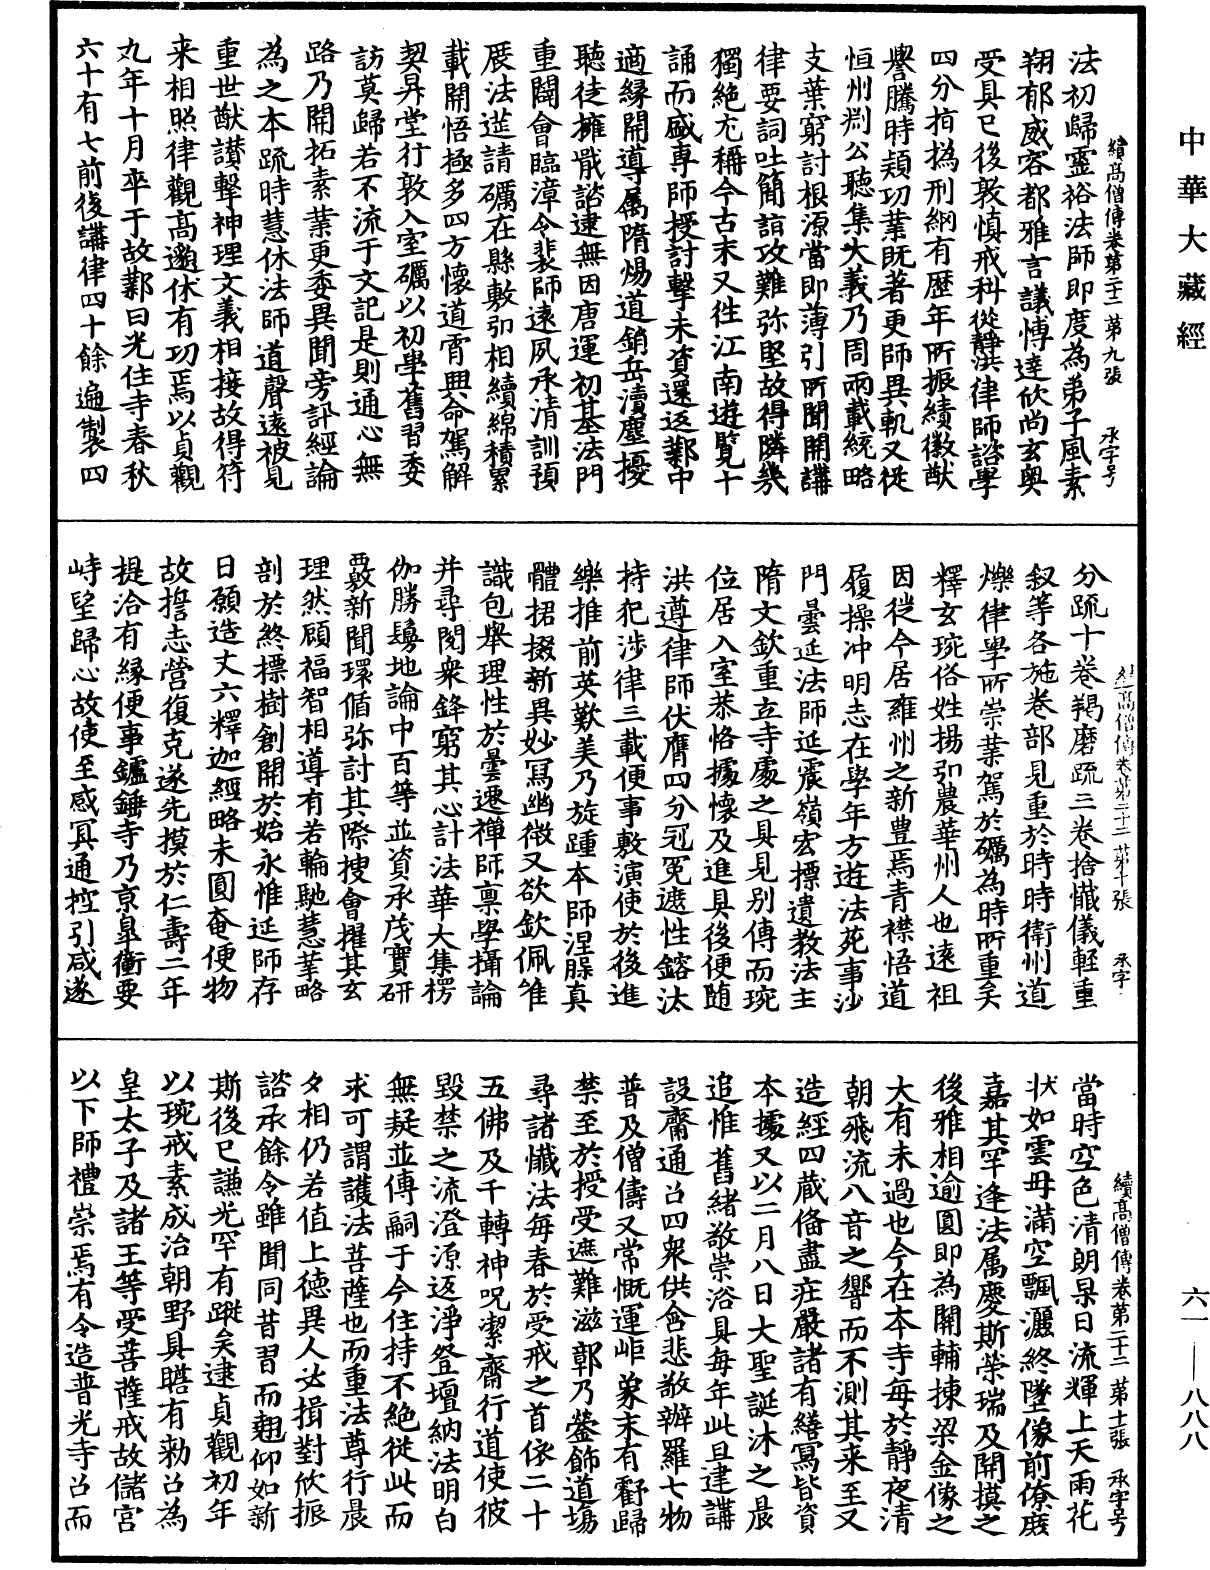 中華大藏經
續高僧傳卷第二十二 第九張 承字号
法初歸靈裕法師即度為弟子風素
翔郁威容都雅言議博達欣尚玄奥
受具已後敦慎戒科從靜洪律師諮學
四分指撝刑網有歷年所振績徽猷
譽騰時頴功業既著更師異軌又従
恒州㓨公聽集大義乃周兩載統略
支葉窮討根源當即薄引所聞開講
律要詞吐簡詣攻難弥堅故得隣幾
獨絶尤稱今古末又徃江南遊覽十
誦而盛專師授討擊未資還返鄴中
適縁開導属隋煬道銷岳瀆塵擾
聽徒擁戢諮逮無因唐運初基法門
重闢會臨漳令裴師逺夙承清訓預
展法莚請礪在縣敷弘相續綿積累
載開悟極多四方懷道霄興命駕解
契昇堂行敦入室礪以初學舊習委
訪莫歸若不流于文記是則通心無
路乃開拓素葉更委異聞旁評經論
為之本疏時慧休法師道聲逺被見
重世猷讃擊神理文義相接故得符
来相照律觀高邈休有功焉以貞觀
九年十月卒于故鄴日光住寺春秋
六十有七前後講律四十餘遍製四
續高僧傳卷第二十二 第十張 承字
分疏十卷羯磨疏三卷捨懺儀軽重
叙等各施卷部見重於時時衛州道
爍律學所崇業駕於礪為時所重矣
釋玄琬俗姓揚弘農華州人也逺祖
因徙今居雍州之新豊焉青襟悟道
履操冲明志在學年方遊法苑事沙
門曇延法師延震嶺宏摽遺教法主
隋文欽重立寺處之具見别傳而琬
位居入室恭恪據懷及進具後便随
洪遵律師伏膺四分冠冕遮性鎔汰
持犯渉律三載便事敷演使於後進
樂推前英歎美乃旋踵本師涅槃真
體捃掇新異妙寫幽微又欲欽佩唯
識包舉理性於曇遷禪師禀學攝論
并尋閲衆鋒窮其心計法華大集楞
伽勝鬘地論中百等並資承茂實研
覈新聞環循弥討其際搜會擢其玄
理然顧福智相導有若輪馳慧業略
剖於終摽樹創開於始永惟延師存
日願造丈六釋迦經略未圓奄便物
故誓志營復克遂先摸於仁壽二年
提洽有縁便事鑪錘寺乃京皐衝要
峙望歸心故使至感冥通控引咸遂
續高僧傳卷第二十二 第十一張 承字号
當時空色清朗杲日流輝上天雨花
状如雲母滿空飄灑終墜像前僚庶
嘉其罕逢法属慶斯榮瑞及開摸之
後雅相逾圓即為關輔揀梁金像之
大有未過也今在本寺每於靜夜清
朝飛流八音之響而不測其来至又
造經四藏俻盡㽵嚴諸有繕寫皆資
本據又以二月八日大聖誕沐之晨
追惟舊緒敬崇浴具每年此旦建講
設齋通召四衆供含悲敬辦羅七物
普及僧儔又常慨運岠象末有虧歸
禁至於授受遮難滋鄣乃鎣飾道塲
尋諸懺法每春於受戒之首依二十
五佛及千轉神呪潔齋行道使彼
毀禁之流澄源返淨登壇納法明白
無疑並傳嗣于今住持不絶従此而
求可謂護法菩薩也而重法尊行晨
夕相仍若值上徳異人必揖對欣振
諮承餘令雖聞同昔習而翹仰如新
斯後已謙光罕有蹤矣逮貞觀初年
以琬戒素成治朝野具瞻有勅召為
皇太子及諸王等受菩薩戒故儲宮
以下師禮崇焉有令造普光寺召而
六一——八八八